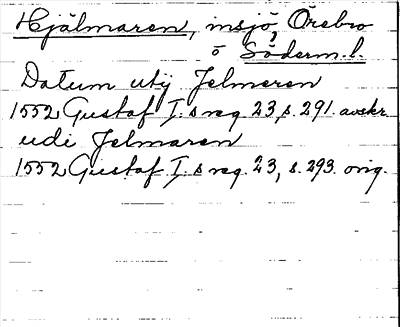 Hjälmaren, insjö, Örebro
o Söderm. l.
Datum utij Jelmeren
1552 Gustaf I:s reg. 23, s. 291. avskr.
udi Jelmaren
1552 Gustaf I:s reg. 23, s. 293. orig.